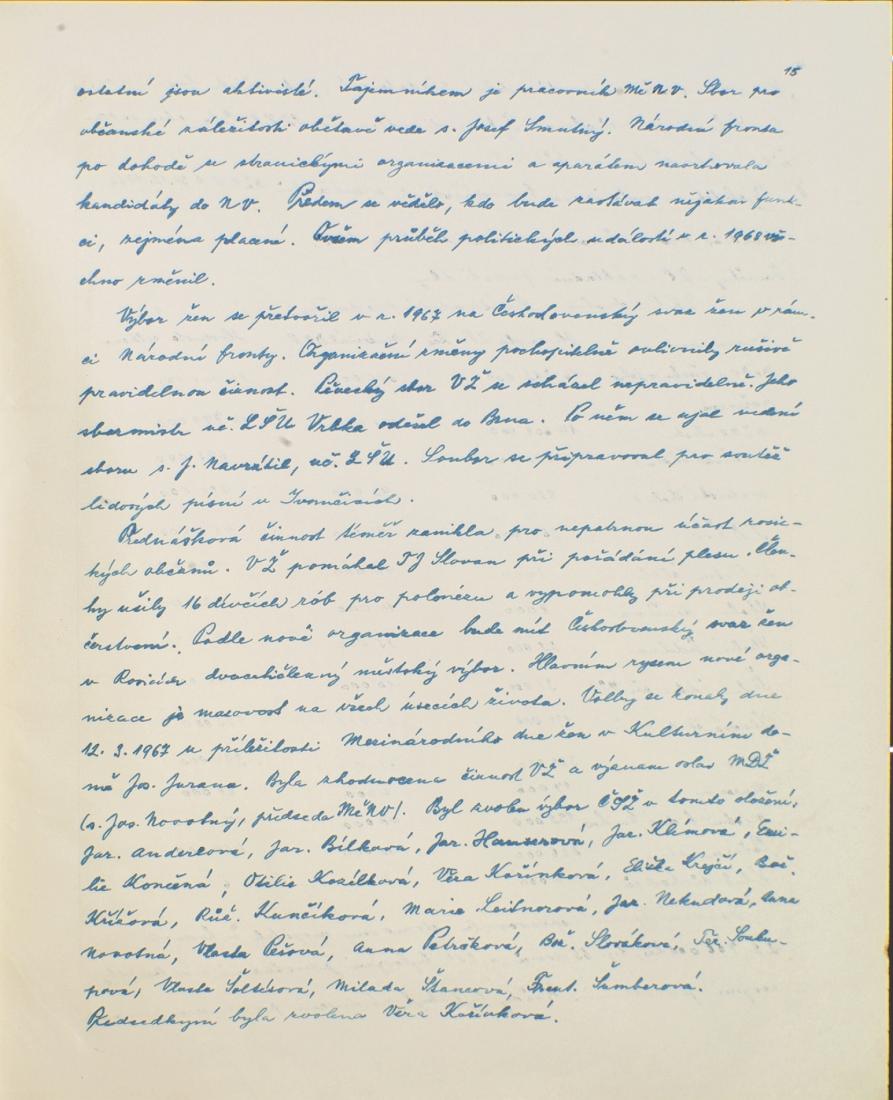 15
ostatní jsou aktivisté. Tajemníkem je pracovník MěNV. Sbor pro
občanské záležitosti obětavě vede s. Josef Smutný. Národní fronta
po dohodě se stranickými organizacemi a aparátem navrhovala
kandidáty do NV. Předem se vědělo, kdo bude zastávat nějakou funk-
ci, zejména placení. Ovšem průběh politických událostí v r. 1968 vše-
chno změnil.
Výbor žen se přetvořil v r. 1967 na Československý svaz žen v rám-
ci Národní fronty. Organizační změny pochopitelně ovlivnily rušivě
pravidelnou činnost. Pěvecký sbor VŽ se scházel nepravidelně. Jeho
sbormistr uč. LŠU Vrbka odešel do Brna. Po něm se ujal vedení
sboru s. J. Navrátil, uč. LŠU. Soubor se připravoval pro soutěž
lidových písní v Ivančicích.
Přednášková činnost téměř zanikla pro nepatrnou účast rosic-
kých občanů. VŽ pomáhal TJ Slovan při pořádání plesu. Člen-
ky ušily 16 dívčích rób pro polonézu a vypomohly při prodeji ob-
čerstvení. Podle nové organizace bude mít Československý svaz žen
v Rosicích dvacetičlenný městský výbor. Hlavním rysem nové orga-
nizace je masovost na všech úsecích života. Volby se konaly dne
12. 3. 1967 u příležitosti Mezinárodního dne žen v Kulturním do-
mě Jos. Jurana. Byla zhodnocena činnost VŽ a význam oslav MDŽ
(s. Jos. Novotný, předseda MěNV). Byl zvolen výbor ČSŽ v tomto složení:
Jar. Anderlová, Jar. Bílková, Jar. Hanserová, Jar. Klímová, Emi-
lie Končená, Otilie Kozílková, Věra Kořínková, Eliška Krejčí, Bož.
Křížová, Růž. Kunčíková, Marie Leitnerová, Jar. Nekudová, Anna
Novotná, Vlasta Pešová, Anna Petrsková, Bož. Slováková, Ter. Souku-
pová, Vlasta Šoltésová, Milada Štancová, Frant. Šumberová.
Předsedkyní byla zvolena Věra Kořínková.